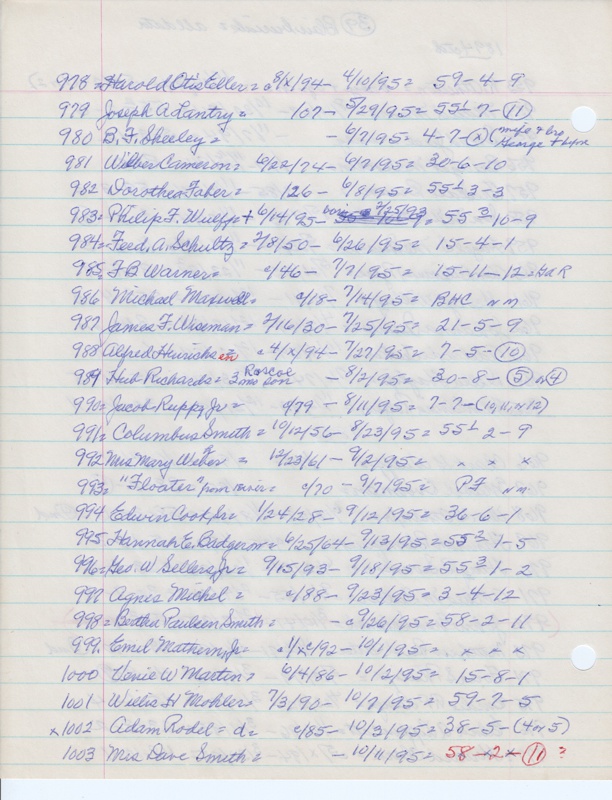 978 = Harold Otis Eller = c8/x/94 - 4/10/95 = 59-4-9
979 Joseph A Lantry = 10? - 5/29/95 = 55½ 7-(11)
980 B. F. Sheeley = - 6/7/95 = 4-7-
981 Wilber Cameron = 6/22/74 - 6/7/95 = 30-6-10
982 Dorothea Faber = 126 - 6/8/95 = 55½ 3-3
983 = Philip F. Wuepp + 6/14/95 - 55 3/ 10-9
984 = Fred. A. Schultz = 2/8/50 - 6/26/95 = 15-4-1
985 = F B Warner = c/46 - 7/7/95 = 15-11-12 = GAR
986 Michael Maxwell = c/18 - 7/14/95 = BHC nm
987 James F. Wiseman = 2/16/30 - 7/25/95 = 21-5-9
988 Alfred Heinrichs = c4/x/94 - 7/27/95 = 7-5-(10)
Roscoe
989 Hub Richards = 3 mo son - 8/2/95 = 30-8-(5) or (4)
990 = Jacob Rupp, Jr = c/79 - 8/11/95 = 7-7-(10, 11, or 12)
991 = Columbus Smith = 10/12/56 - 8/23/95 = 55½ 2-9
992 Mrs Mary F Weber = 12/23/61 - 9/2/95 = x x x
993 = "Floater" from river = c/70 - 9/7/95 = PF nm
994 Edwin Cook Jr = 1/24/28 - 9/12/95 = 36-6-1
995 Hannah E. Badgerow = 6/25/64 - 9/13/95 = 55 2/ 1-5
996 = Geo. W. Sellers, Jr = 9/15/93 - 9/18/95 = 55 3/ 1-2
997 Agnes Michel = c/88 - 9/23/95 = 3-4-12
998 = Bertha Paulsen Smith = - c9/26/95 = 58-2-11
999. Emil Mathern, Jr = c1/x/92 - 10/1/95 = x x x
1000 Venie W Martin = 6/4/86 - 10/2/95 = 15-8-1
1001 Willis H Mohler = 7/3/90 - 10/7/95 = 59-7-5
x1002 Adam Rodel = d = c/85 - 10/3/95 = 38-5-(4 or 5)
1003 Mrs Dave Smith = - 10/11/95 = 58-2-(11) ?